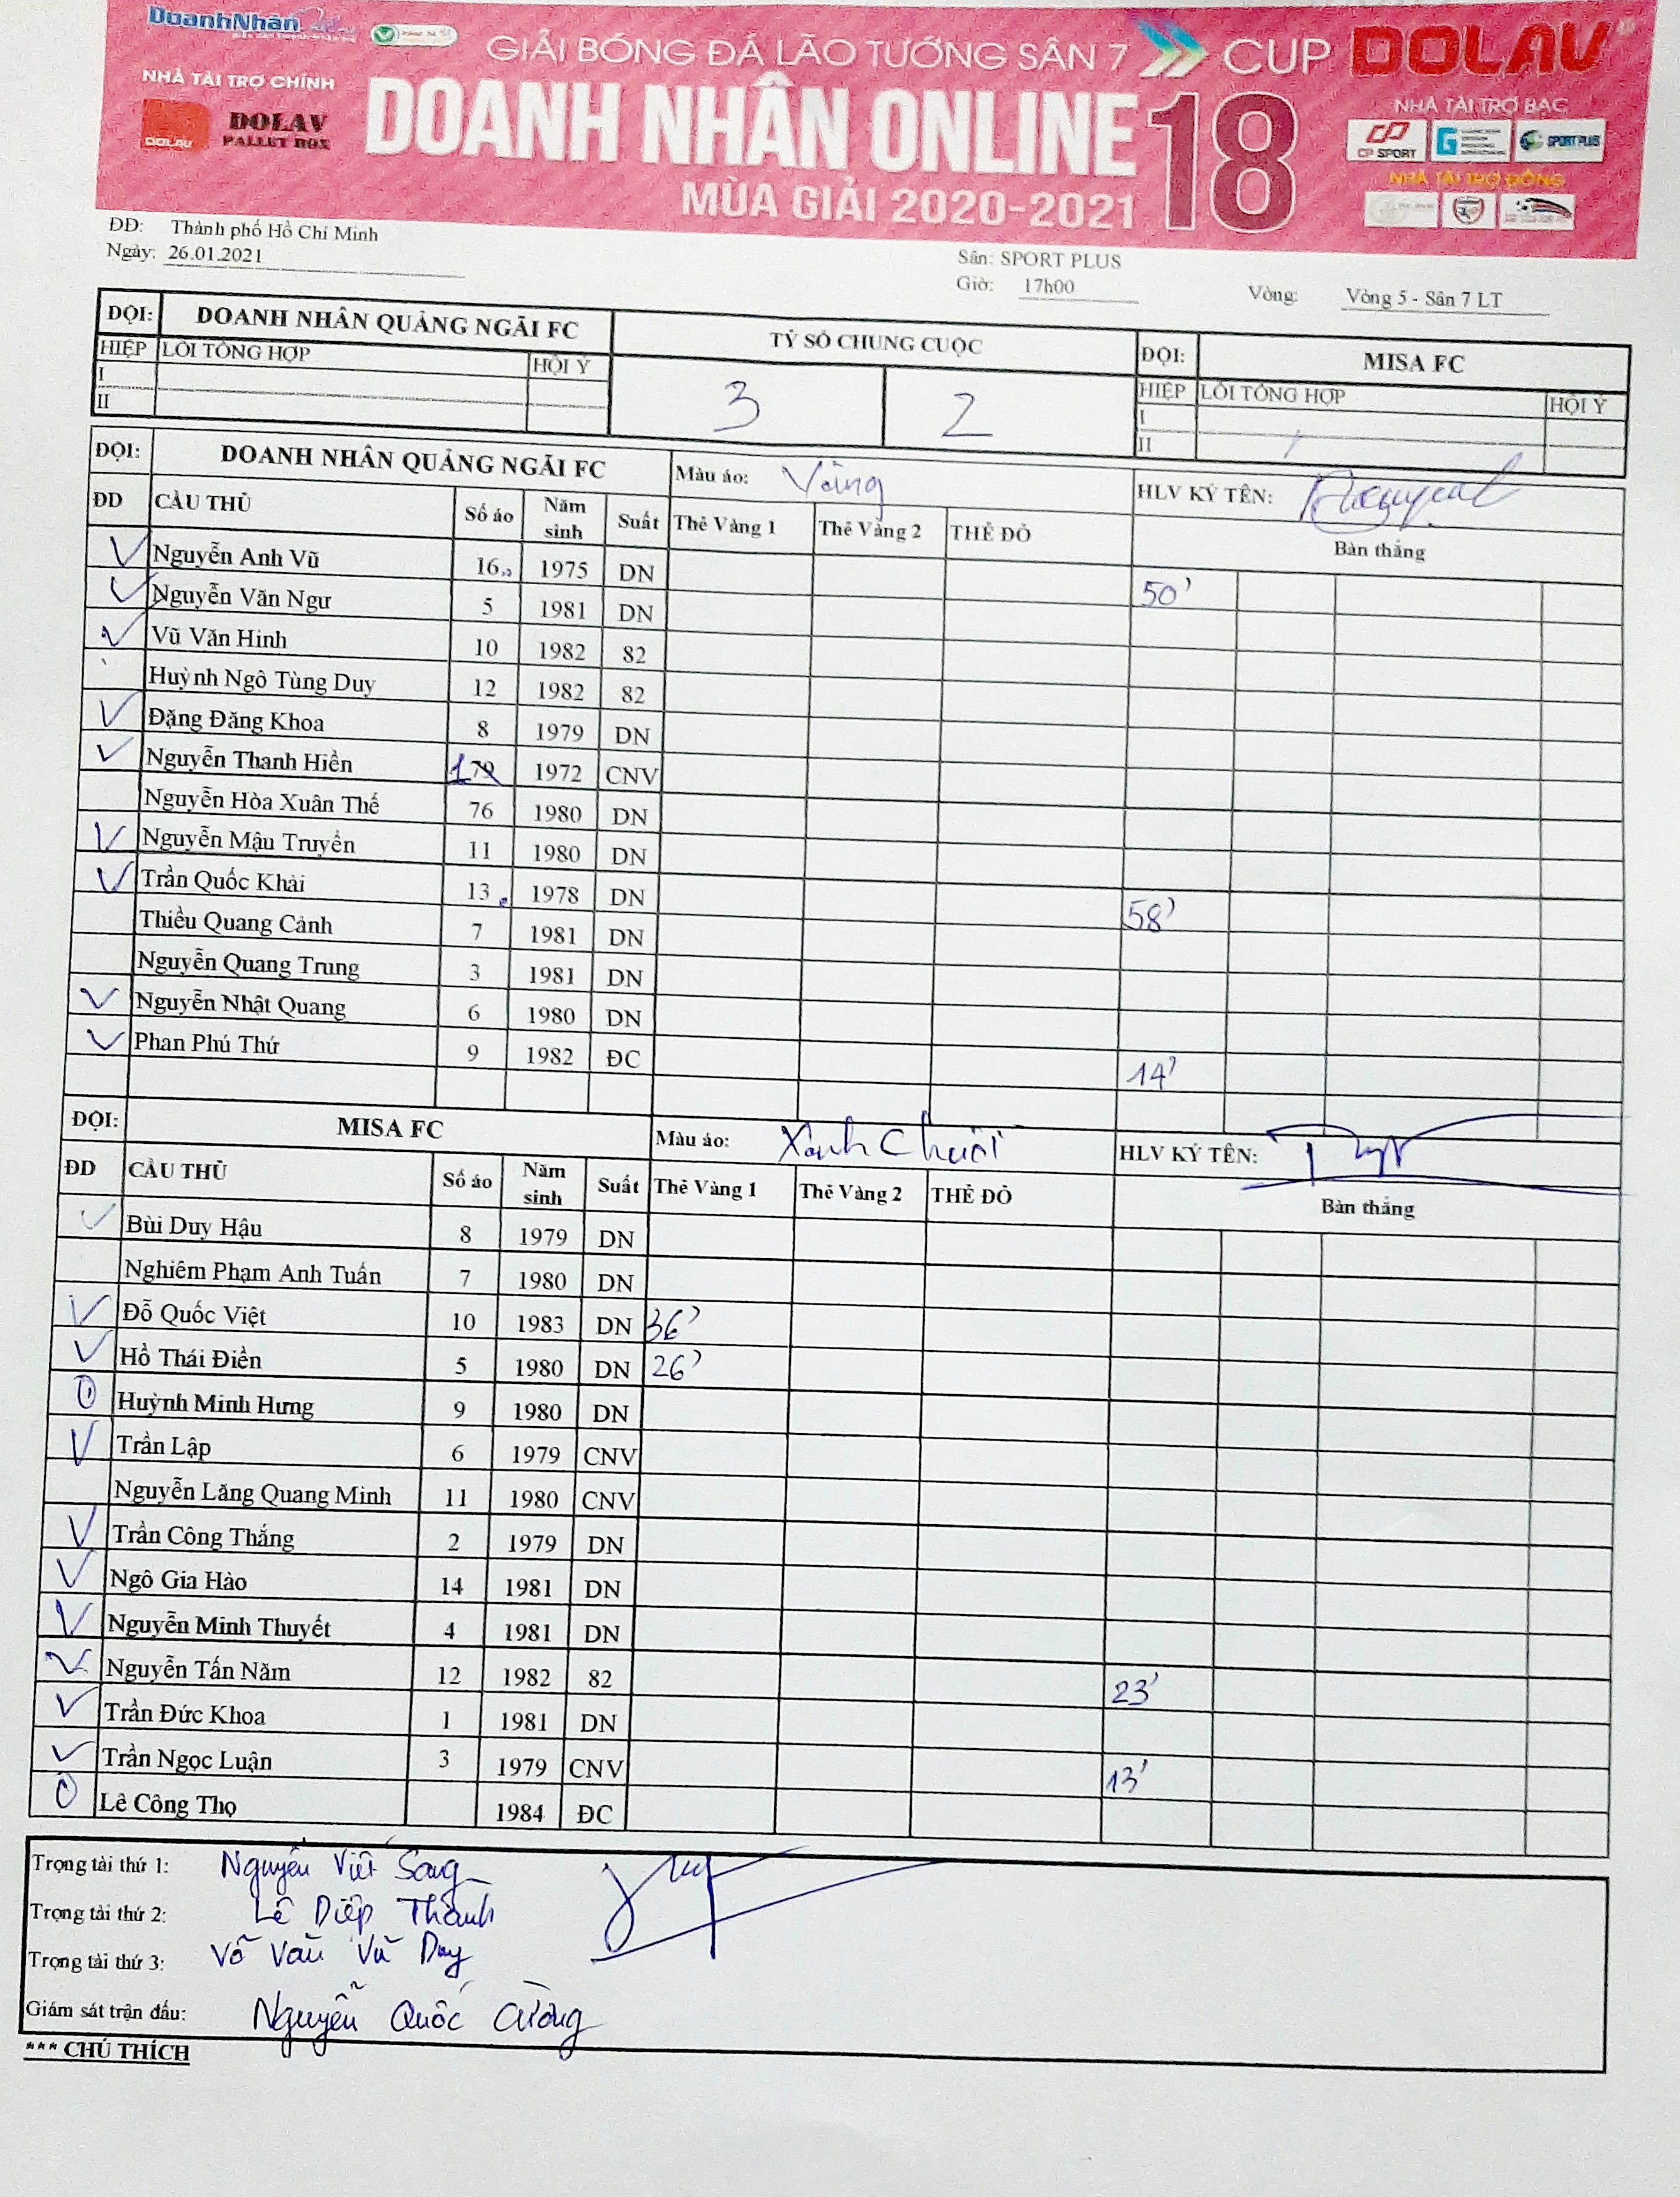 DoanhNhân
GIẢI BÓNG ĐÁ LÃO TƯỚNG SÂN 7 CUP DOLAV
NHÀ TÀI TRỢ CHÍNH
DOLAV
DOLAV
PALLET BOX
DOANH NHÂN ONLINE 18
MÙA GIẢI 2020-2021
NHÀ TÀI TRỢ BẠC
CP SPORT SPORT PLUS
NHÀ TÀI TRỢ ĐỒNG
ĐD: Thành phố Hồ Chí Minh
Ngày: 26.01.2021
Sân: SPORT PLUS
Giờ: 17h00 Vòng: Vòng 5 - Sân 7 LT
ĐỘI: DOANH NHÂN QUẢNG NGÃI FC TỶ SỐ CHUNG CUỘC ĐỘI: MISA FC
HIỆP LỖI TỔNG HỢP HỘI Ý 3 2 HIỆP LỖI TỔNG HỢP HỘI Ý
I I
II II
ĐỘI: DOANH NHÂN QUẢNG NGÃI FC Màu áo: Vàng HLV KÝ TÊN:
ĐD CẦU THỦ Số áo Năm sinh Suất Thẻ Vàng 1 Thẻ Vàng 2 THẺ ĐỎ Bàn thắng
Nguyễn Anh Vũ 16 1975 DN 50'
Nguyễn Văn Ngư 5 1981 DN
Vũ Văn Hinh 10 1982 82
Huỳnh Ngô Tùng Duy 12 1982 82
Đặng Đăng Khoa 8 1979 DN
Nguyễn Thanh Hiền 1 79 1972 CNV
Nguyễn Hòa Xuân Thế 76 1980 DN
Nguyễn Mậu Truyền 11 1980 DN
Trần Quốc Khải 13 1978 DN 58'
Thiều Quang Cảnh 7 1981 DN
Nguyễn Quang Trung 3 1981 DN
Nguyễn Nhật Quang 6 1980 DN
Phan Phú Thứ 9 1982 ĐC 14'
ĐỘI: MISA FC Màu áo: Xanh Chuối HLV KÝ TÊN:
ĐD CẦU THỦ Số áo Năm sinh Suất Thẻ Vàng 1 Thẻ Vàng 2 THẺ ĐỎ Bàn thắng
Bùi Duy Hậu 8 1979 DN
Nghiêm Phạm Anh Tuấn 7 1980 DN
Đỗ Quốc Việt 10 1983 DN 36'
Hồ Thái Điền 5 1980 DN 26'
Huỳnh Minh Hưng 9 1980 DN
Trần Lập 6 1979 CNV
Nguyễn Lăng Quang Minh 11 1980 CNV
Trần Công Thắng 2 1979 DN
Ngô Gia Hào 14 1981 DN
Nguyễn Minh Thuyết 4 1981 DN
Nguyễn Tấn Năm 12 1982 82 23'
Trần Đức Khoa 1 1981 DN
Trần Ngọc Luận 3 1979 CNV 13'
Lê Công Thọ 1984 ĐC
Trọng tài thứ 1: Nguyễn Viết Song
Trọng tài thứ 2: Lê Diệp Thành
Trọng tài thứ 3: Võ Văn Vũ Duy
Giám sát trận đấu: Nguyễn Quốc Cường
*** CHÚ THÍCH